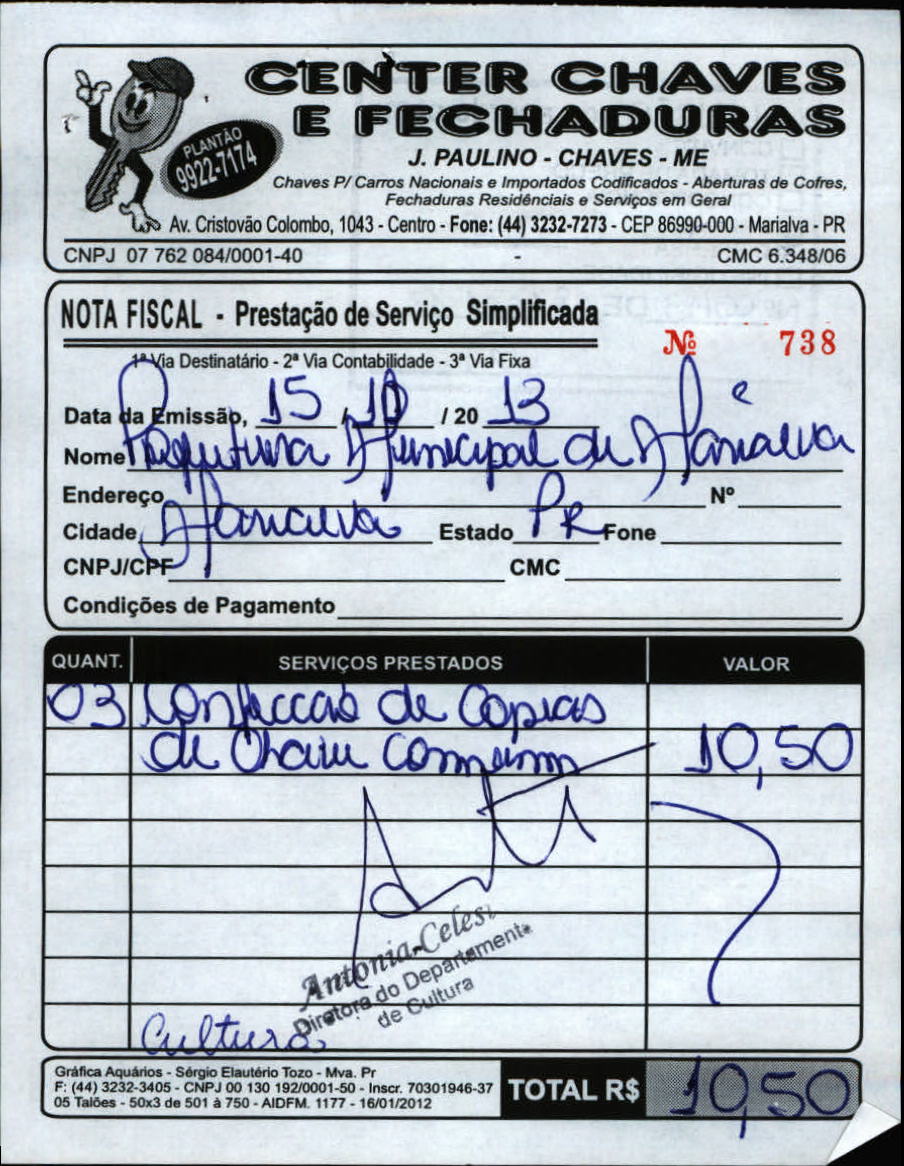 CENTER CHAVES
E FECHADURAS
PLANTÃO
9922-7174
J. PAULINO - CHAVES - ME
Chaves P/ Carros Nacionais e Importados Codificados - Aberturas de Cofres,
Fechaduras Residênciais e Serviços em Geral
Av. Cristovão Colombo, 1043 - Centro - Fone: (44) 3232-7273 - CEP 86990-000 - Marialva - PR
CNPJ 07 762 084/0001-40 - CMC 6.348/06
NOTA FISCAL - Prestação de Serviço Simplificada
Nº 738
1ª Via Destinatário - 2ª Via Contabilidade - 3ª Via Fixa
Data da Emissão, 15 / 10 / 20 13
Nome Prefeitura Municipal de Marialva
Endereço Nº
Cidade Marialva Estado PR Fone
CNPJ/CPF CMC
Condições de Pagamento
QUANT. SERVIÇOS PRESTADOS VALOR
03 Confeccao de Copias
de Chave Comum 10,50
Antonia Celes
Diretora do Departamento
de Cultura
Cultura
Gráfica Aquários - Sérgio Elautério Tozo - Mva. Pr
F: (44) 3232-3405 - CNPJ 00 130 192/0001-50 - Inscr. 70301946-37
05 Talões - 50x3 de 501 à 750 - AIDFM. 1177 - 16/01/2012
TOTAL R$ 10,50